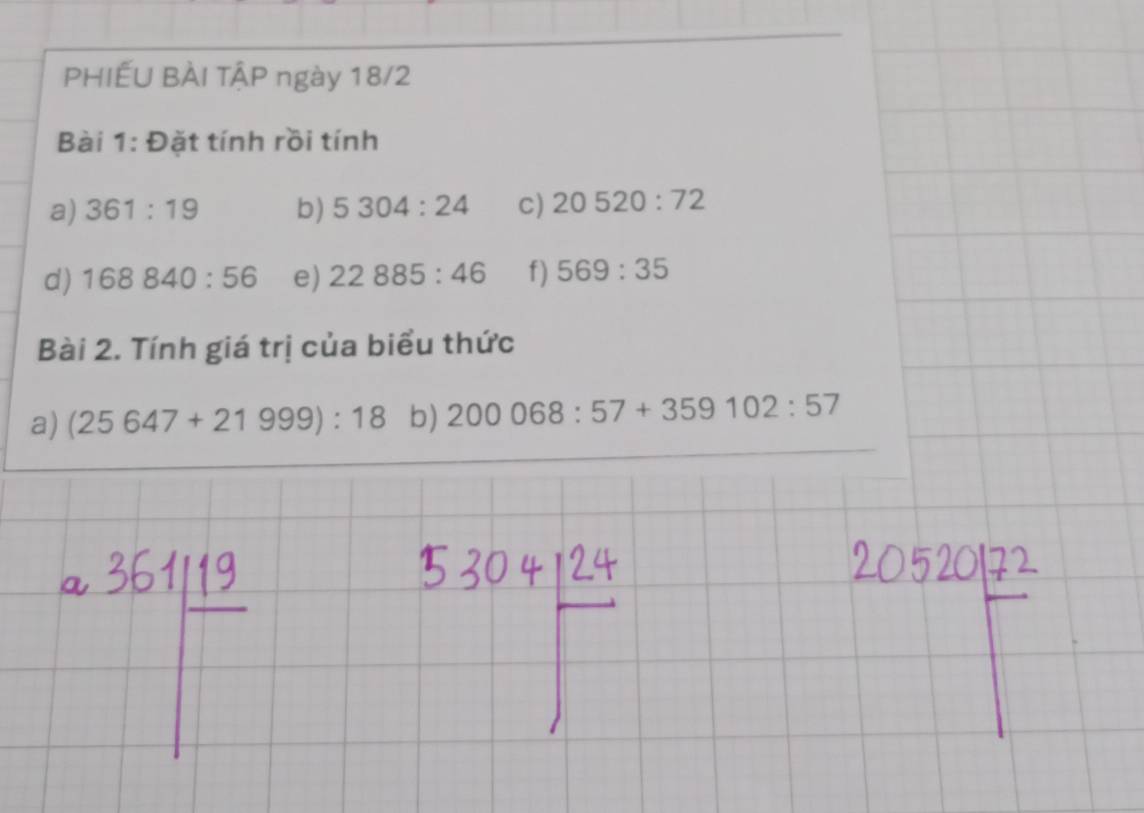 PHIẾU BÀI TẬP ngày 18/2
Bài 1: Đặt tính rồi tính
a) 361 : 19 b) 5 304 : 24 c) 20 520 : 72
d) 168 840 : 56 e) 22 885 : 46 f) 569 : 35
Bài 2. Tính giá trị của biểu thức
a) (25 647 + 21 999) : 18 b) 200 068 : 57 + 359 102 : 57
a 361 19 5304 24 20520 72